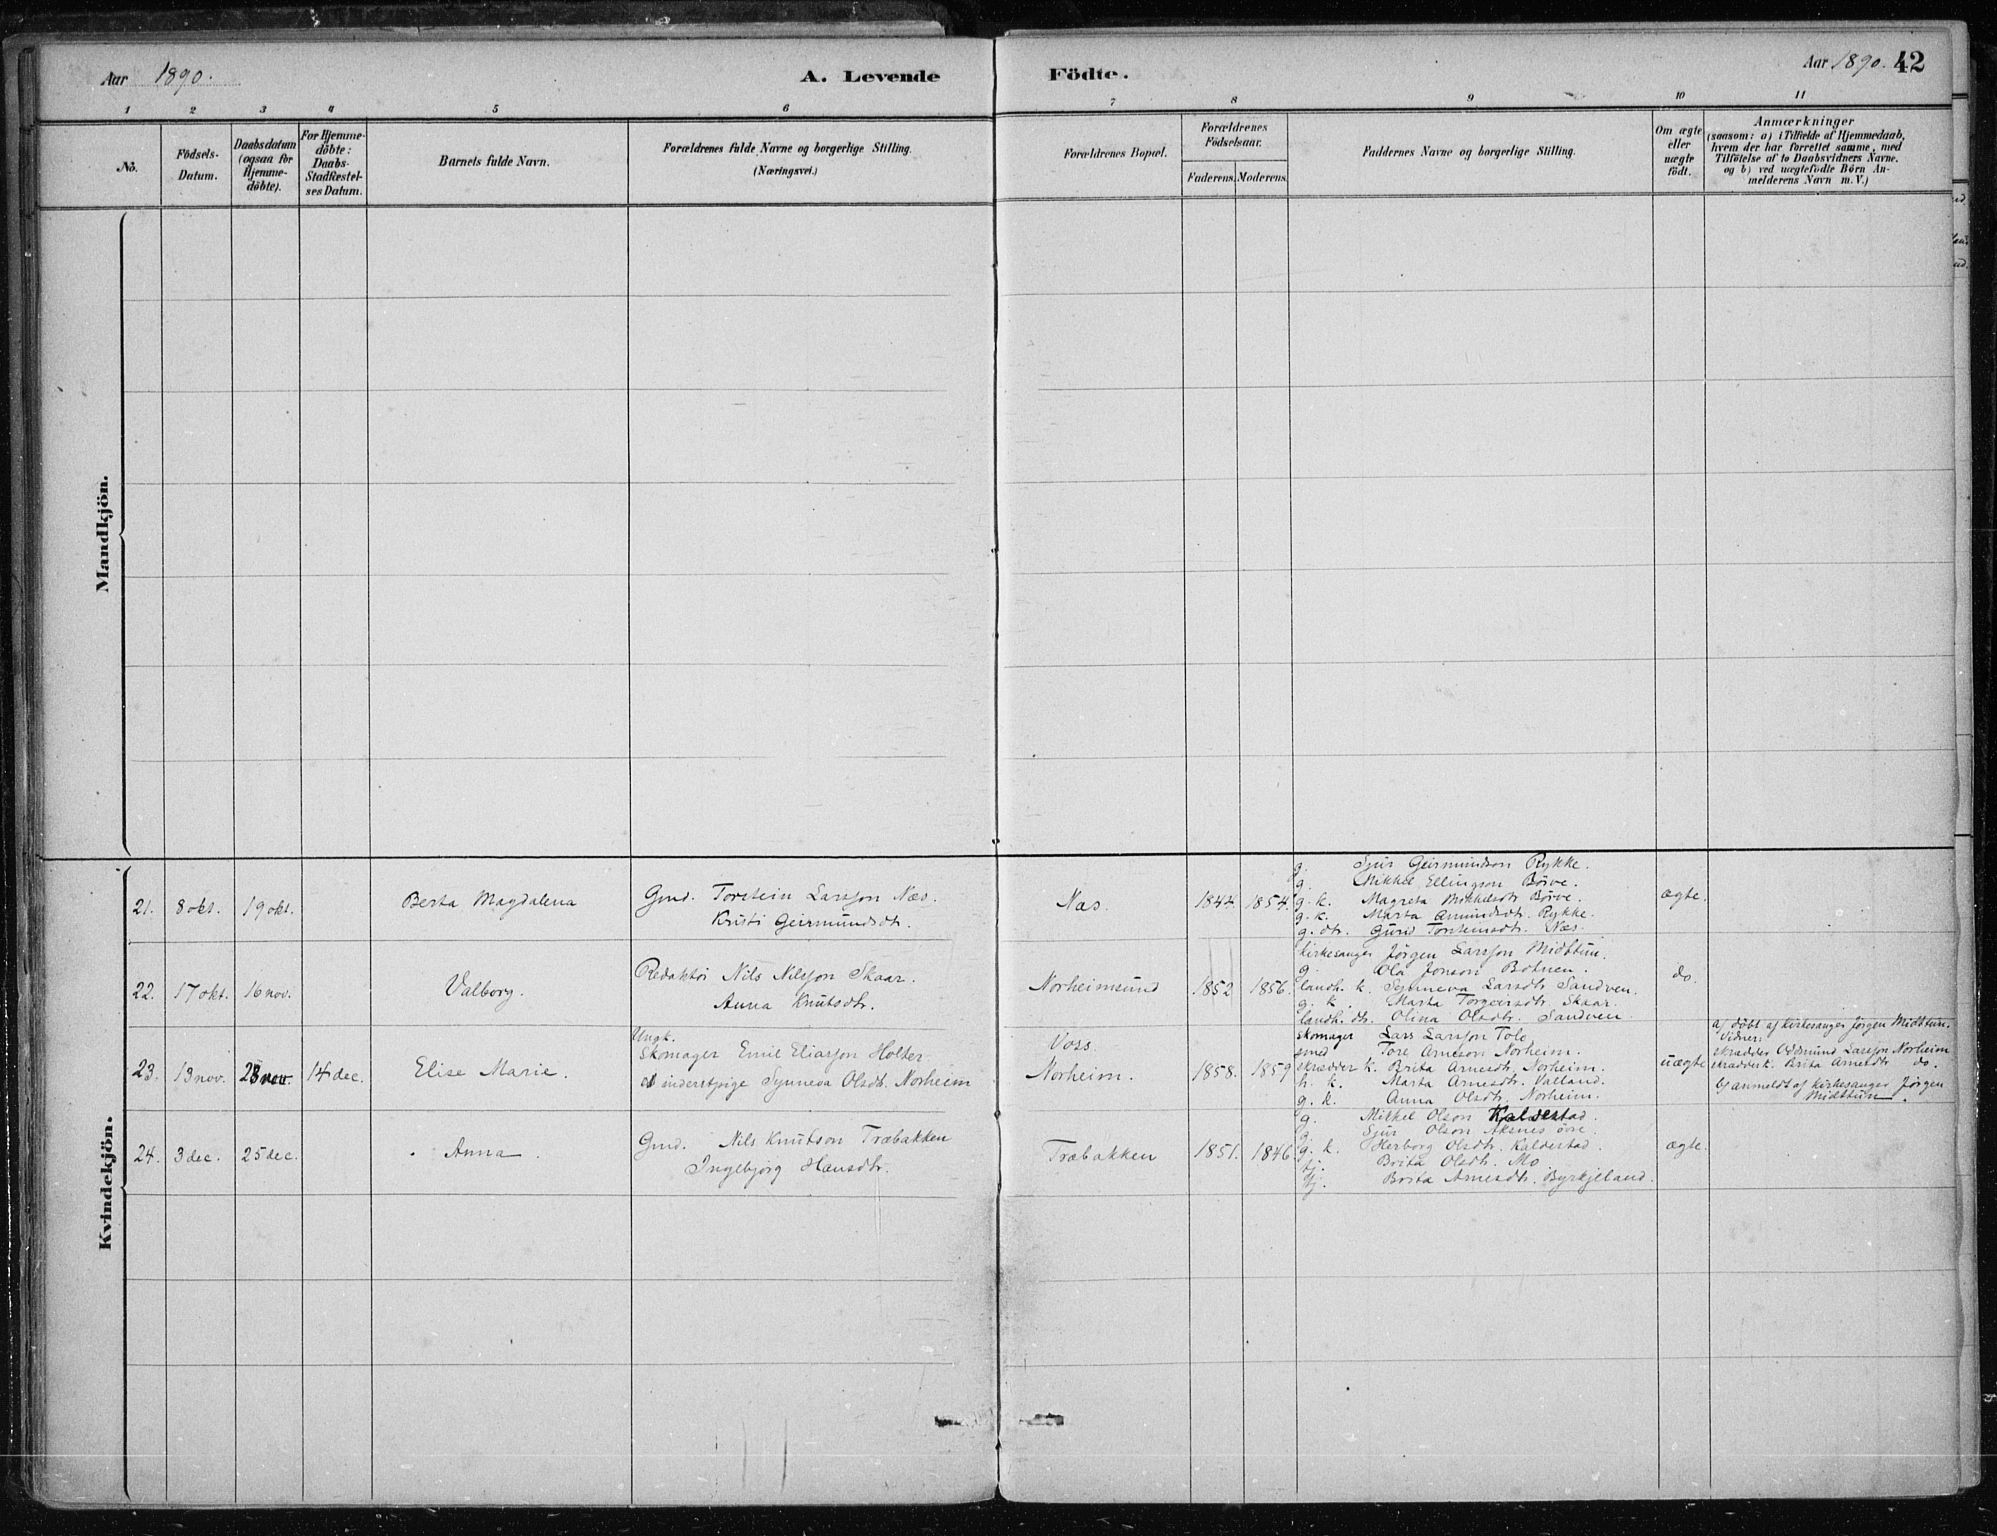 Aar 1890.
A. Levende Födte.
Aar 1890. 42
1 2 3 4 5 6 7 8 9 10 11
No.
Födsels-Datum.
Daabsdatum (ogsaa for Hjemme-döbte).
For Hjemme-döbte: Daabs-Stadfæstel-ses Datum.
Barnets fulde Navn.
Forældrenes fulde Navne og borgerlige Stilling. (Næringsvei.)
Forældrenes Bopæl.
Forældrenes Födselsaar.
Faderens. Moderens.
Faddernes Navne og borgerlige Stilling.
Om ægte eller uægte födt.
Anmærkninger
(saasom: a) i Tilfælde af Hjemmedaab,
hvem der har forrettet samme, med
Tilföielse af to Daabsvidners Navne.
og b) ved uægtefödte Börn An-
melderens Navn m. V.)
Mandkjön.
Kvindekjön.
21. 8 okt. 19 okt. Berta Magdalena
Gmd. Torstein Larsson Næs.
Kristi Geirmundsdtr.
Næs. 1844. 1854.
g. Sjur Geirmundson Rykke.
g. Mikkel Ellingson Börve.
g. k. Magreta Mikkelsdtr Börve.
g. k. Marta Amundsdtr. Rykke.
g. dtr. Gurid Torsteinsdtr. Næs.
ægte.
22. 17 okt. 16 nov. Valborg.
Redaktör Nils Nilsson Skaar.
Anna Knutsdtr.
Norheimsund 1852 1856.
kirkesanger Jörgen Larsson Midttun.
g. Ola Jonson Botnen.
landh. k. Synneva Larsdtr Sandven.
g. k. Marta Torgeirsdtr. Skaar.
landh. dtr. Olina Olsdtr. Sandven
do.
23. 13 nov. 28 nov. 14 dec. Elise Marie.
Ungk.
Skomager Emil Eliasson Holter
inderstpige Synneva Olsdtr. Norheim
Voss.
Norheim. 1858. 1859
skomager Lars Larsson Tolo
smed Tore Arneson Norheim.
skrædder k. Brita Arnesdtr. Norheim.
h. k. Marta Arnesdtr. Valland.
g. k. Anna Olsdtr. Norheim.
uægte
a) döbt af kirkesanger Jörgen Midttun.
Vidner:
skrædder Oddmund Larsson Norheim
skrædderk. Brita Arnesdtr do.
b) anmeldt af kirkesanger Jörgen
Midttun.
24. 3 dec. 25 dec. Anna.
Gmd. Nils Knutson Træbakken
Ingebjörg Hansdtr.
Træbakken 1851. 1846.
g. Mikkel Olson Kaldestad.
g. Sjur Olson Aksnes övre.
g. k. Herborg Olsdtr. Kaldestad.
tj. Brita Olsdtr. Mo
tj. Brita Arnesdtr. Byrkjeland.
ægte.